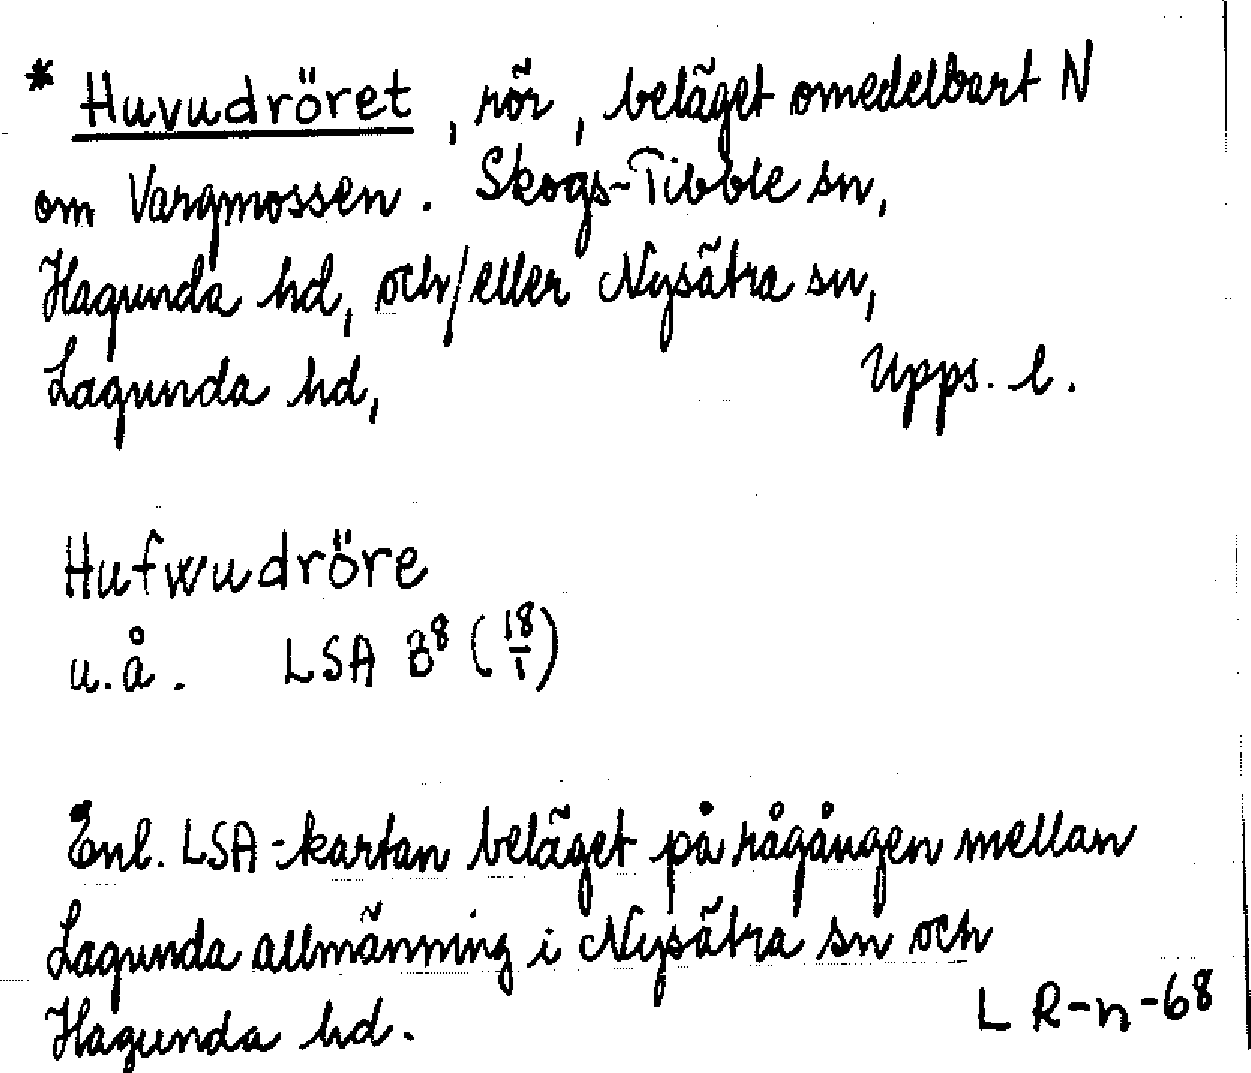 * Huvudröret, rör, beläget omedelbart N
om Vargmossen. Skogs-Tibble sn,
Hagunda hd, och/eller Nysätra sn,
Lagunda hd, Upps. l.
Hufwudröre
u.å. LSA B⁸ (18/1)
Enl. LSA-kartan beläget på rågången mellan
Lagunda allmänning i Nysätra sn och
Hagunda hd.
L R-n-68